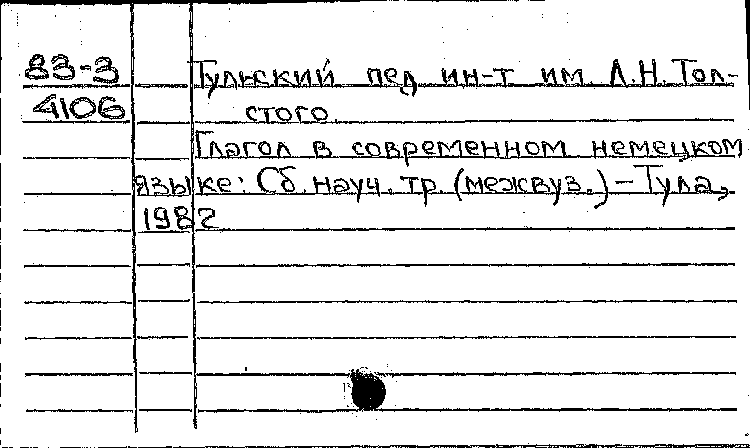 83-3 Тульский пед ин-т им. Л.Н. Тол-
4106 стого.
Глагол в современном немецком
языке: Сб. науч. тр. (межвуз.) – Тула,
1982